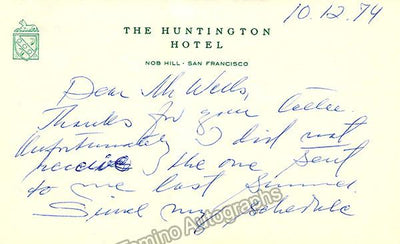 10.12.74
THE HUNTINGTON
HOTEL
NOB HILL · SAN FRANCISCO
Dear Mr Wells,
Thanks for your letter.
Unfortunately I did not
receive the one sent
to me last Summer.
Since my schedule
Tamino Autographs